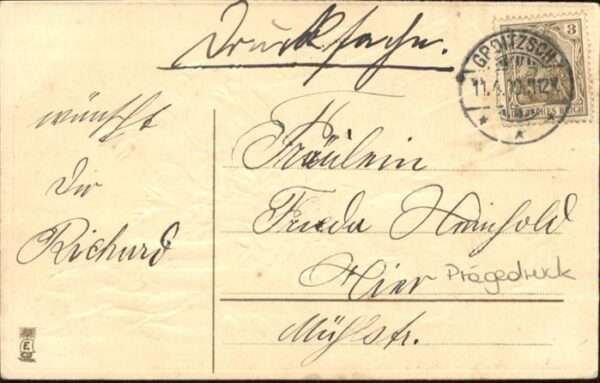 Drucksache.
3
GROITZSCH
11.4.10. 11-12V.
DEUTSCHES REICH
wünscht
Dir
Richard
Fräulein
Frieda Hainhold
Hier
Prägedruck
Mühlstr.